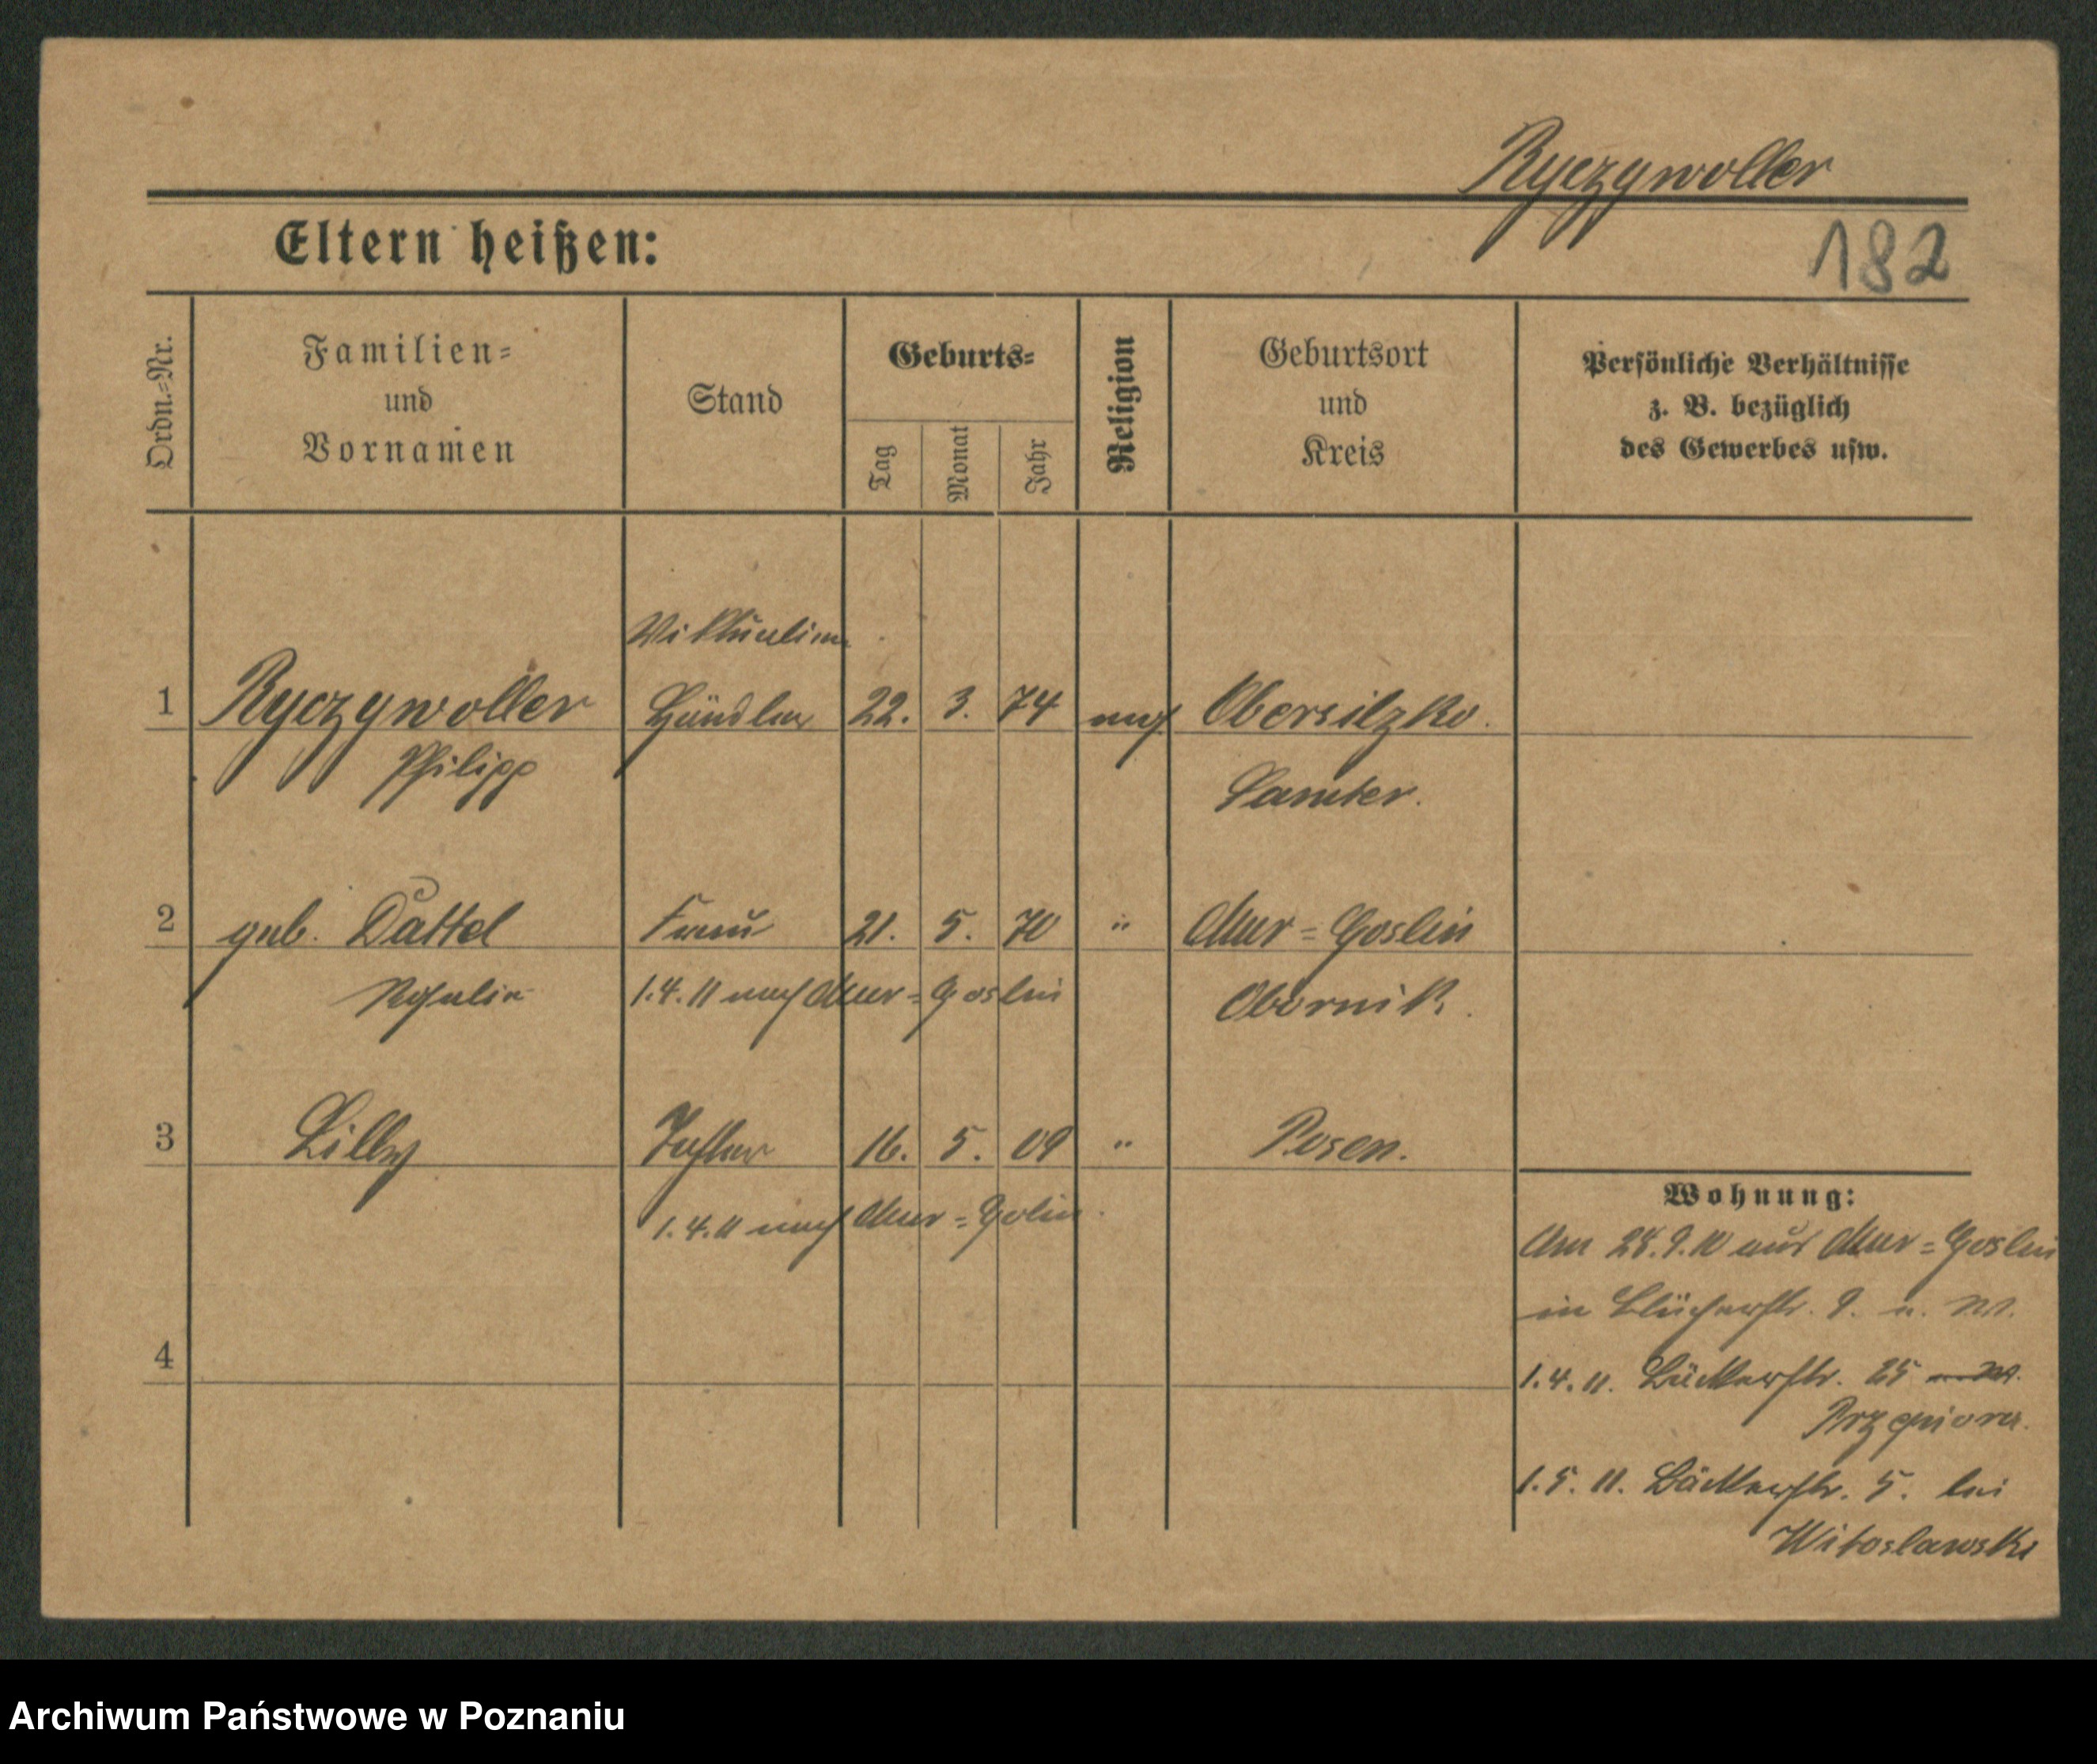 Ryczywoller
182
Eltern heißen:
Ordn.-Nr.
Familien-
und
Vornamen
Stand
Geburts-
Tag
Monat
Jahr
Religion
Geburtsort
und
Kreis
Persönliche Verhältnisse
z. B. bezüglich
des Gewerbes usw.
1 Ryczywoller Händler 22. 3. 74 mos Obersitzko.
Philipp Samter.
2 geb. Dattel Frau 21. 5. 70 " Mur=Goslin
Rosalie 1.4.11 nach Mur=Goslin Obornik.
3 Lilly Tochter 16. 5. 09 " Posen.
1.4.11 nach Mur=Golin.
4
Wohnung:
Am 28.9.10 aus Mur=Goslin
in Blücherstr. 9.
1.4.11. Bäckerstr. 25
1.5.11. Bäckerstr. 5. bei
Witoslawski
Archiwum Państwowe w Poznaniu